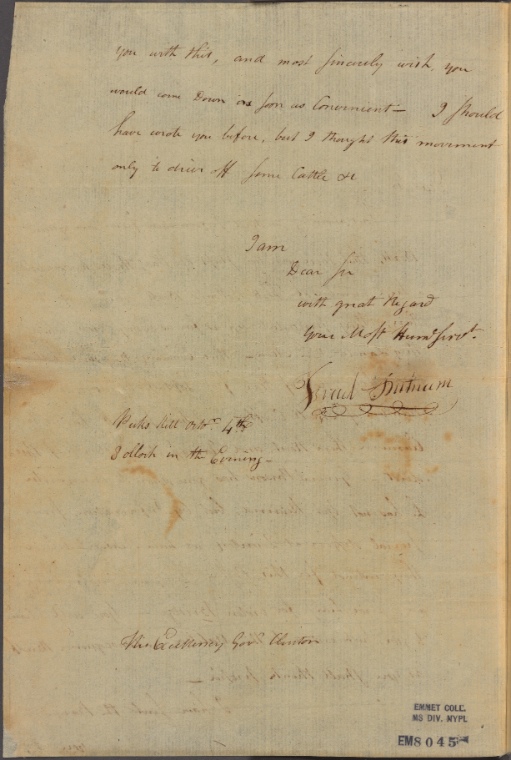 you with this, and most sincerely wish you
would come Down as soon as Convenient – I should
have wrote you before, but I thought this movement
only to drive off some Cattle &c
I am
Dear Sir
with great Regard
your Most Humb Servt.
Israel Putnam
Peeks Kill Octr. 4th
8 oClock in the Evening –
His Excellency Govr. Clinton
EMMET COLL.
MS DIV. NYPL
EM8045